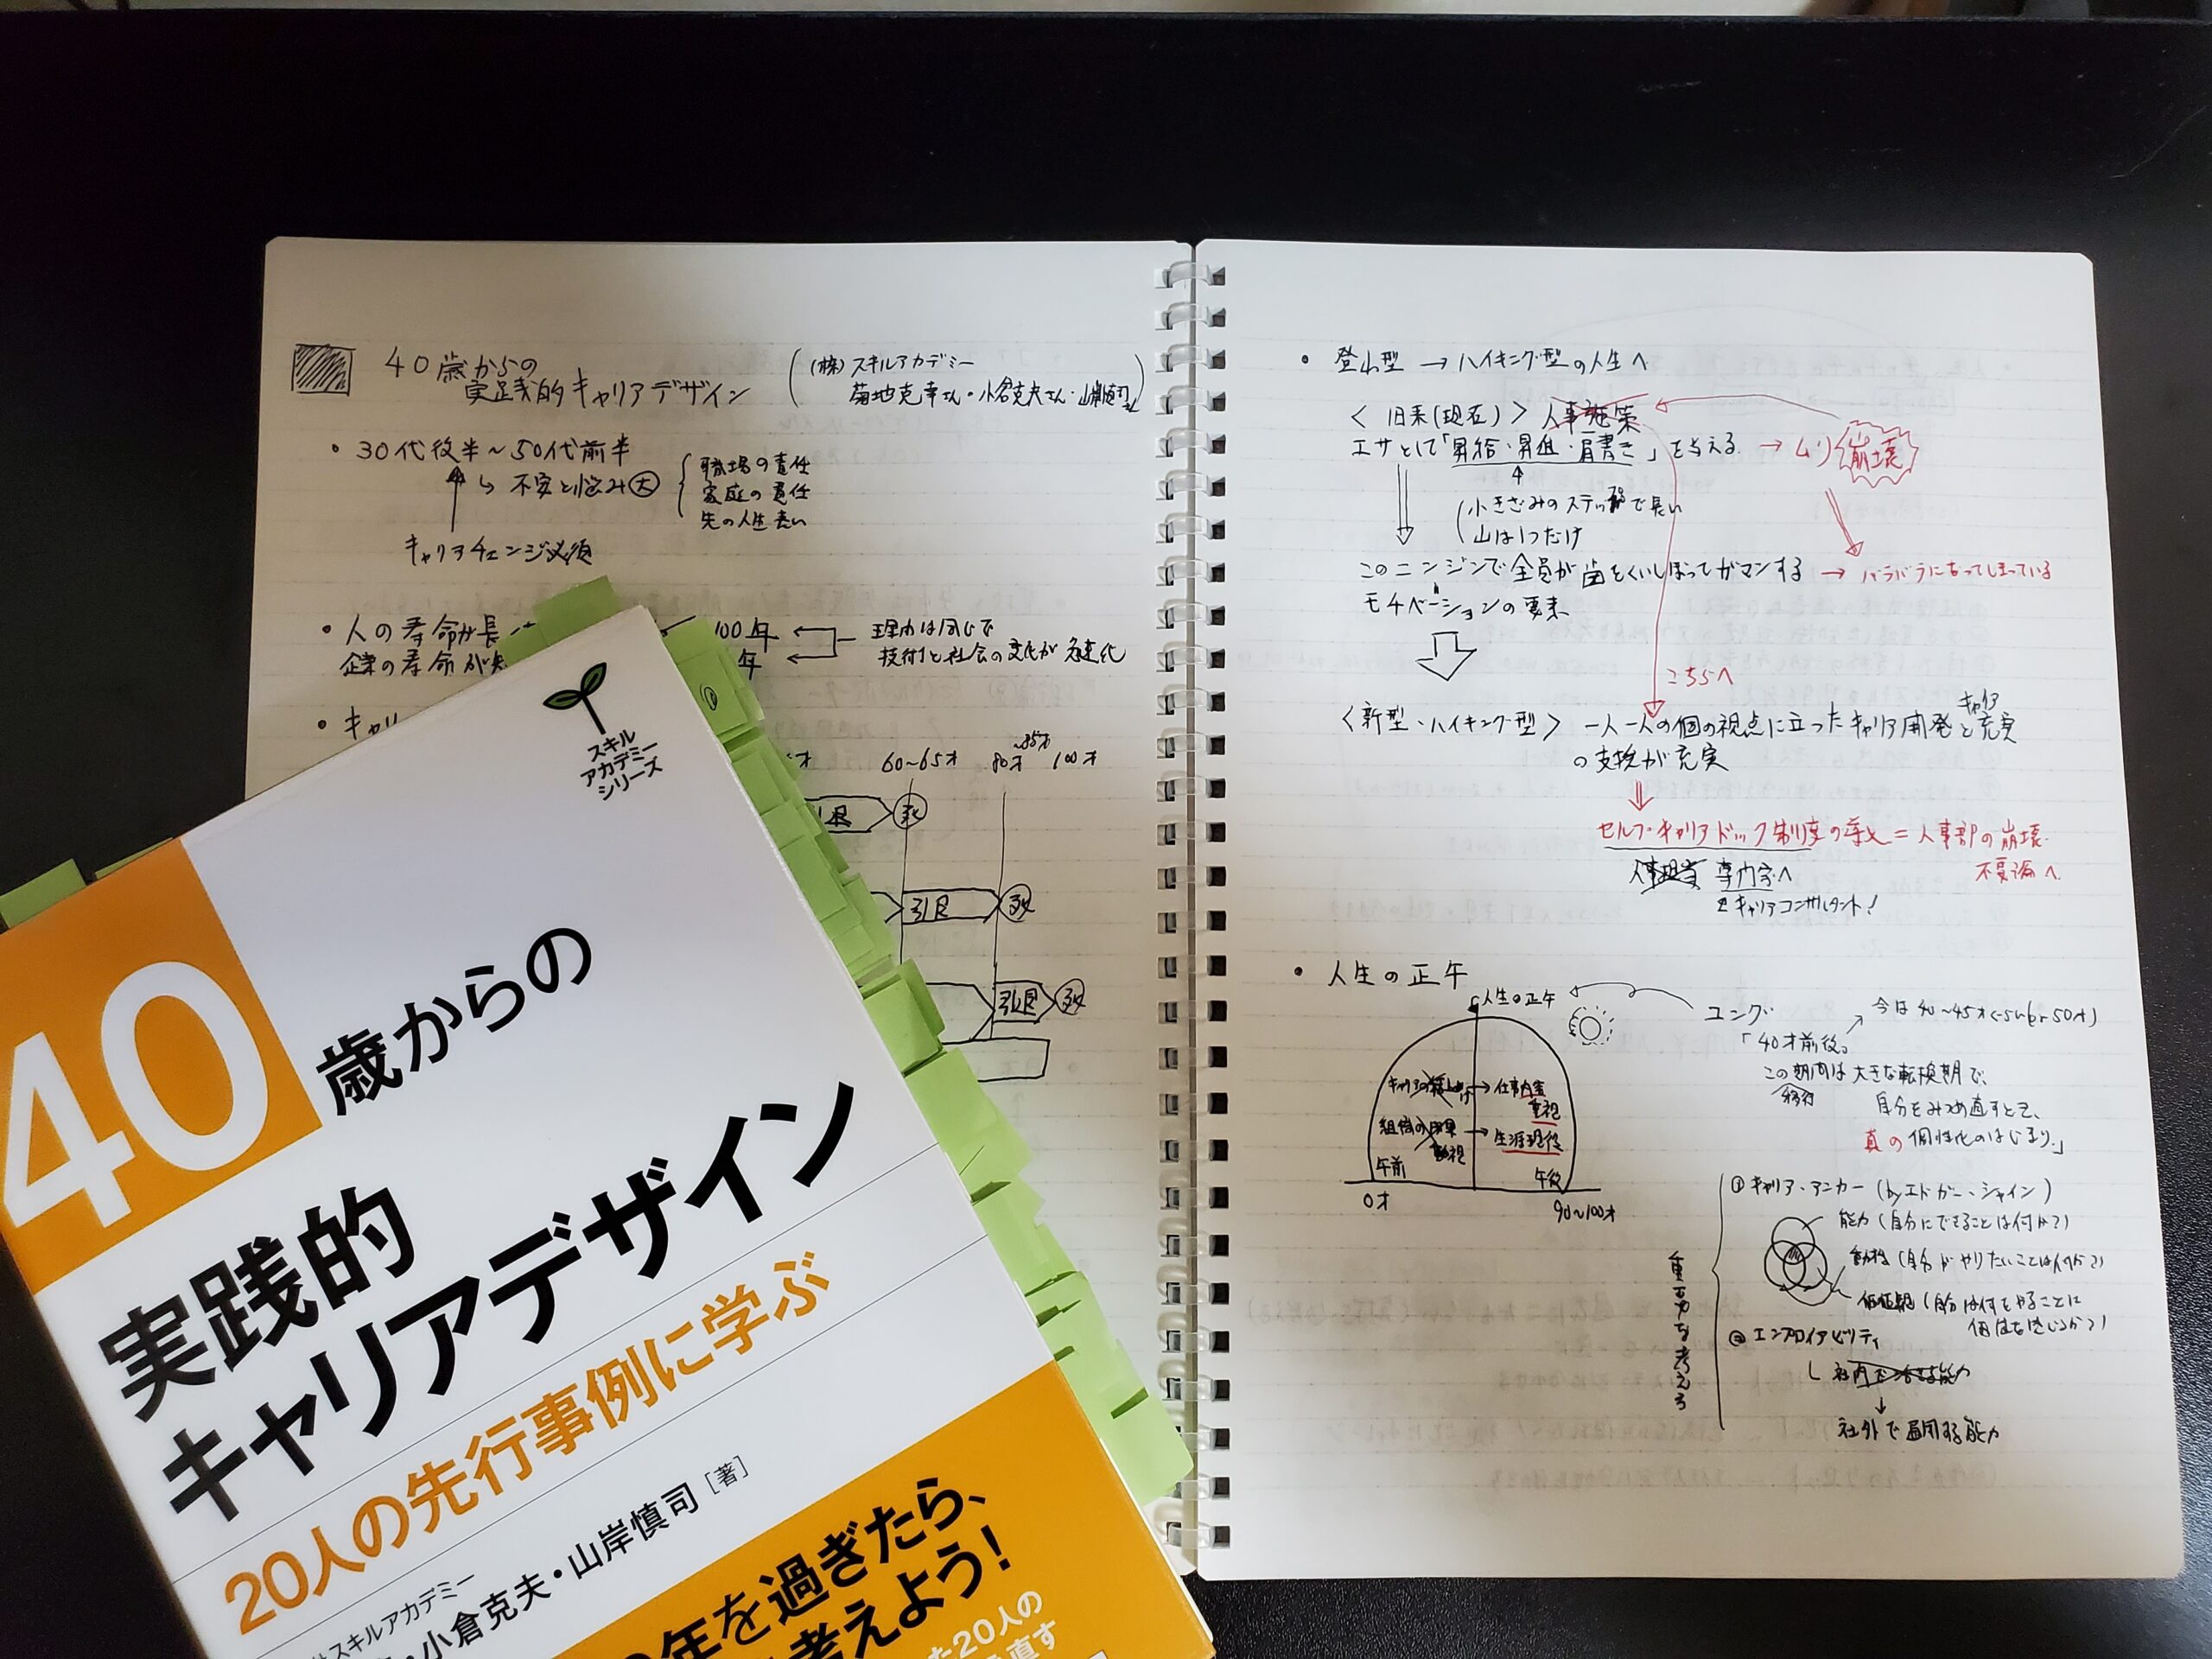 40歳からの
実践的キャリアデザイン
(株)スキルアカデミー
菊地克幸さん・小倉克夫さん・山岸慎司さん
・30代後半～50代前半
↳ 不安と悩み大
職場の責任
家庭の責任
先の人生長い
キャリアチェンジ必須
・人の寿命が長
100年
企業の寿命が短
年
理由は同じで
技術と社会の変化が急速化
・キャリ
60～65才
80才
～85才
100才
引退
死
引退
死
引退
死
・登山型 → ハイキング型の人生へ
<旧来(現在)> 人事施策
エサとして「昇給・昇進・肩書き」を与える → ムリ 崩壊
小きざみのステップで長い
山は1つだけ
このニンジンで全員が歯をくいしばってガマンする → バラバラになってしまっている
モチベーションの要素
こちらへ
<新型・ハイキング型> 一人一人の個の視点に立ったキャリア開発とキャリア充実
の支援が充実
セルフ・キャリアドック制度の導入 = 人事部の崩壊
不要論へ
人事担当 専門家へ
キャリアコンサルタント!
・人生の正午
人生の正午
ユング
今は40～45才
50才)
「40才前後。
この期間は大きな転換期で、
自分をみつめ直すとき、
真の個性化のはじまり。」
キャリアの
→ 仕事内容
重視
組織の
重視
→ 生涯現役
午前
午後
0才
90～100才
重モカを考える
① キャリア・アンカー (by エドガー・シャイン)
能力 (自分にできることは何か?)
動機 (自分がやりたいことは何か?)
価値観 (自分は何をやることに
価値を感じるか?)
② エンプロイアビリティ
社内で
能力
↓
社外で通用する能力
スキル
アカデミー
シリーズ
40歳からの
実践的
キャリアデザイン
20人の先行事例に学ぶ
スキルアカデミー
・小倉克夫・山岸慎司[著]
年を過ぎたら、
考えよう!
た20人の
直す